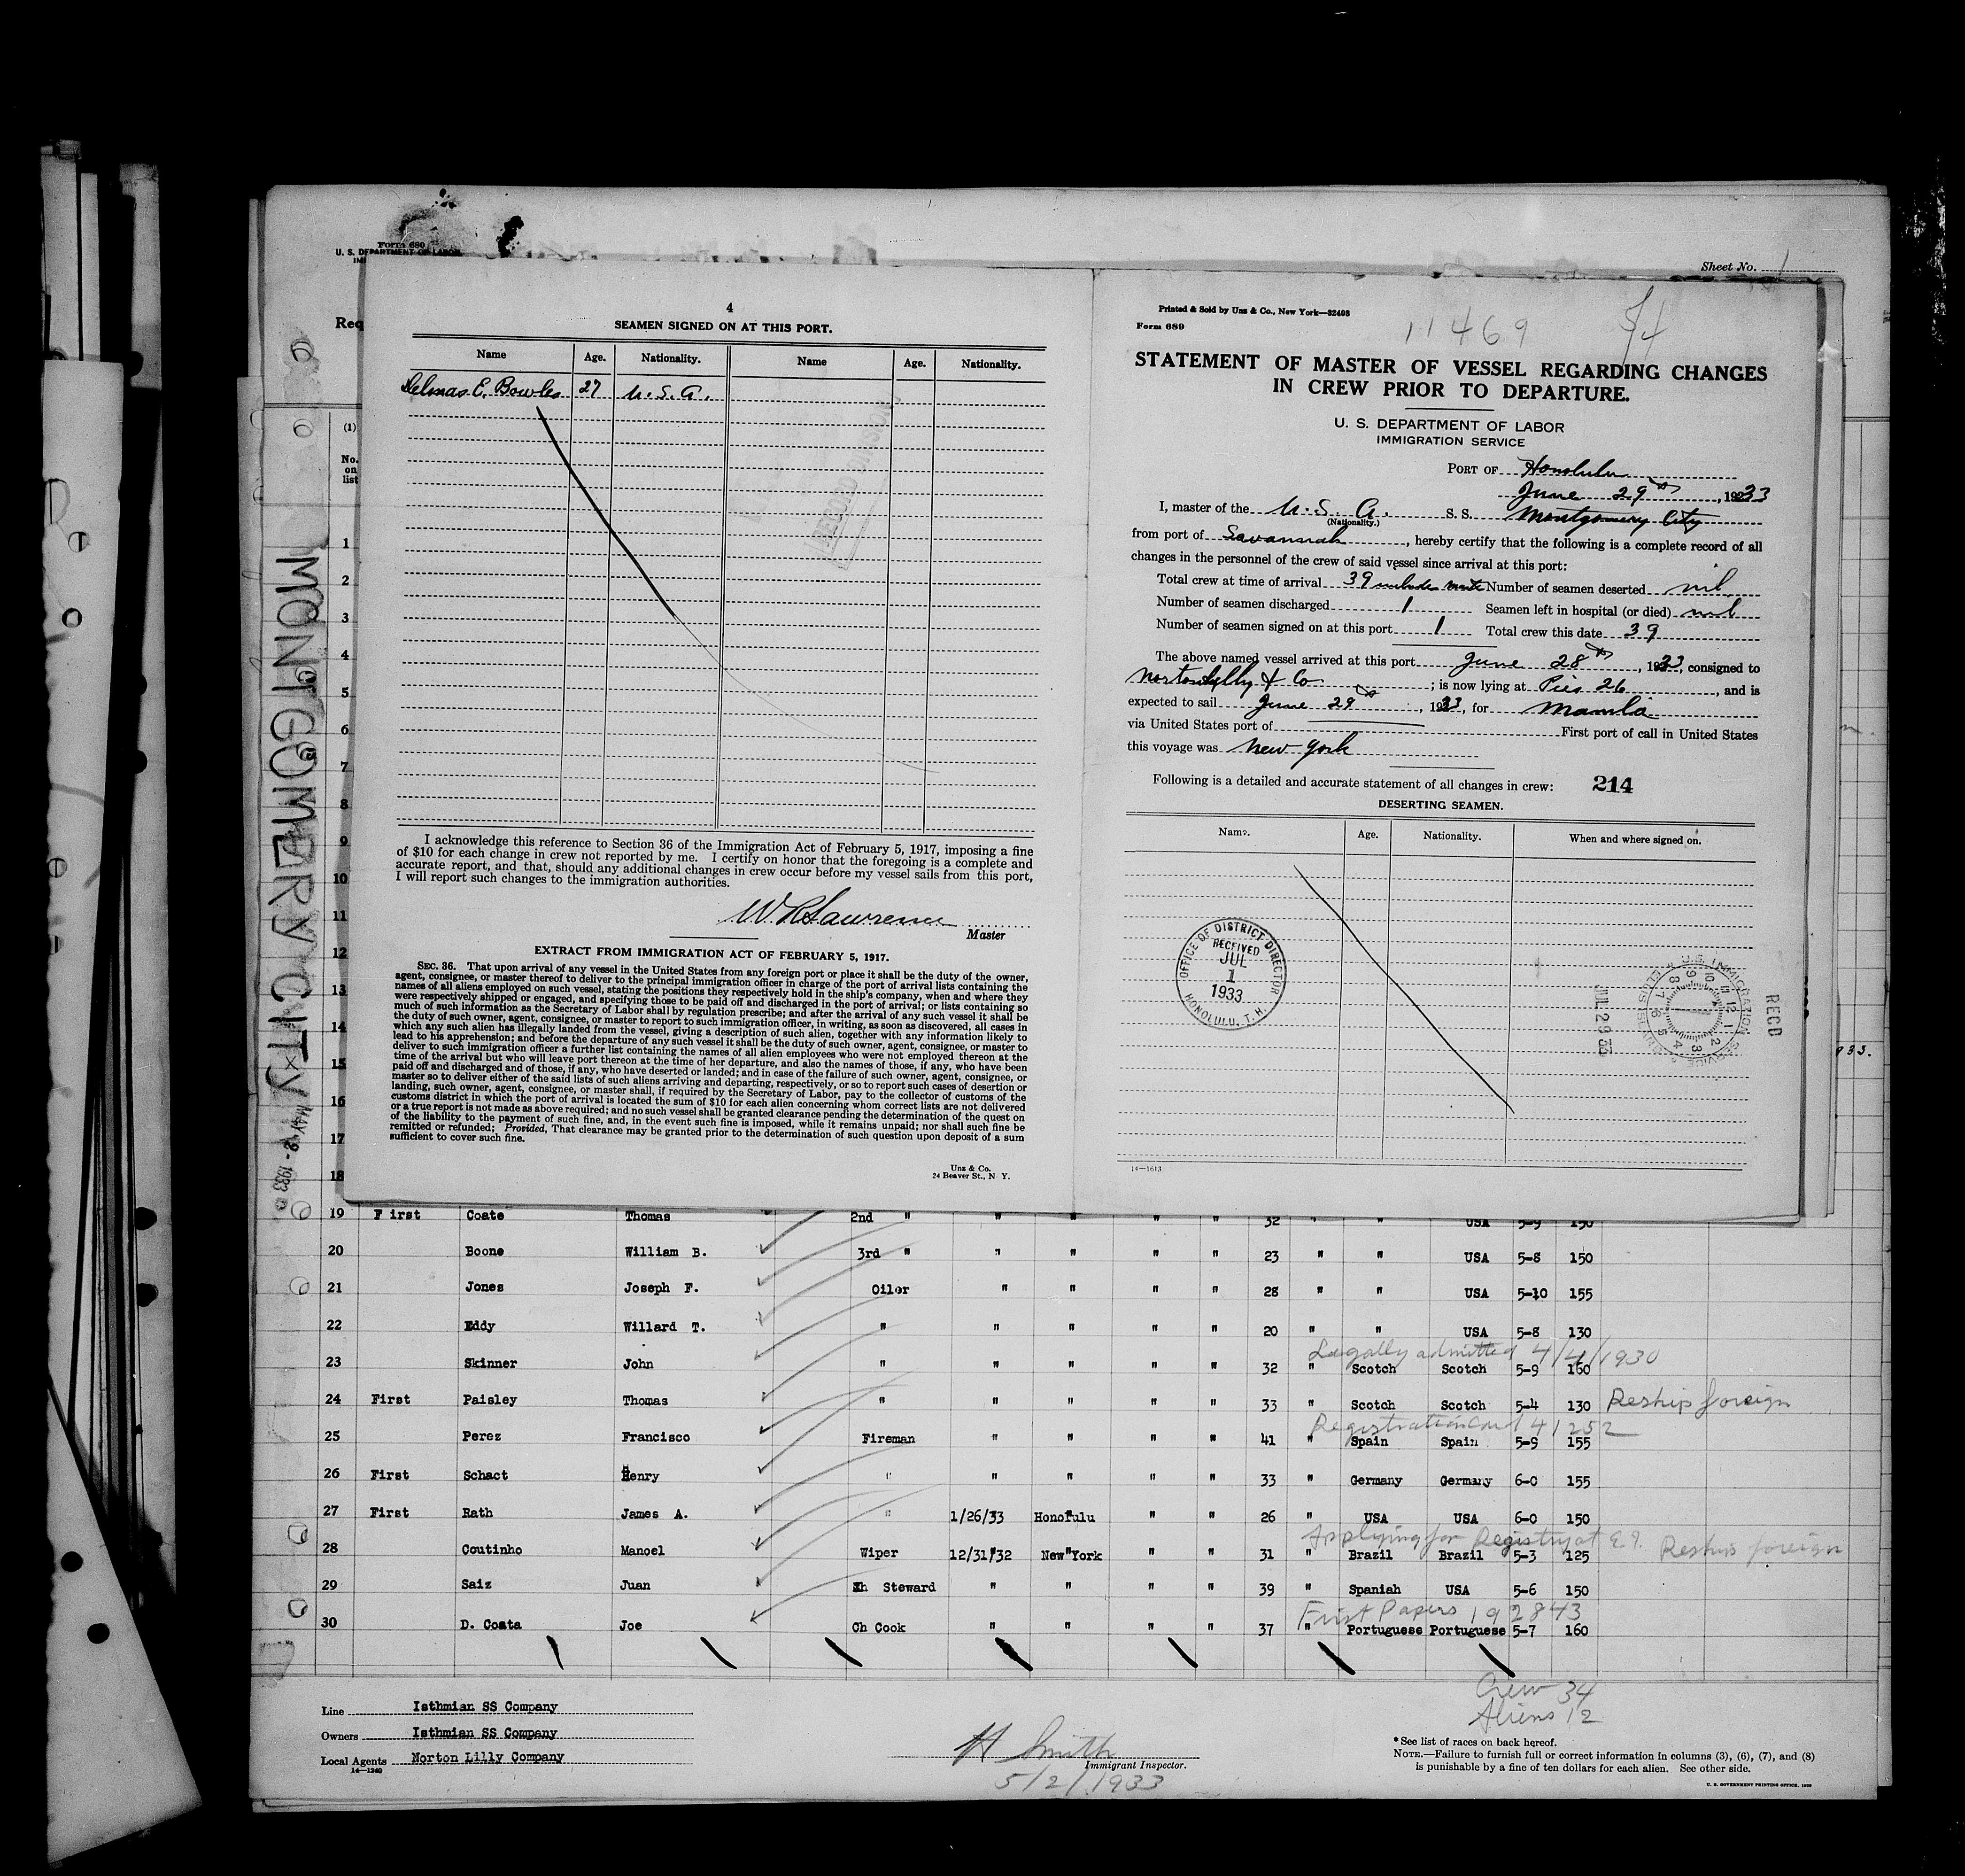 Form 680
U. S. DEPARTMENT OF LABOR
Sheet No. 1
Req
(1)
No. on list
MONTGOMERY CITY MAY 2 - 1933
4
SEAMEN SIGNED ON AT THIS PORT.
Name Age. Nationality. Name Age. Nationality.
Delmas E. Bowles 27 U. S. A.
RECORD DIVISION
I acknowledge this reference to Section 36 of the Immigration Act of February 5, 1917, imposing a fine
of $10 for each change in crew not reported by me. I certify on honor that the foregoing is a complete and
accurate report, and that, should any additional changes in crew occur before my vessel sails from this port,
I will report such changes to the immigration authorities.
W. R. Lawrence
Master
EXTRACT FROM IMMIGRATION ACT OF FEBRUARY 5, 1917.
SEC. 36. That upon arrival of any vessel in the United States from any foreign port or place it shall be the duty of the owner,
agent, consignee, or master thereof to deliver to the principal immigration officer in charge of the port of arrival lists containing the
names of all aliens employed on such vessel, stating the positions they respectively hold in the ship's company, when and where they
were respectively shipped or engaged, and specifying those to be paid off and discharged in the port of arrival; or lists containing so
much of such information as the Secretary of Labor shall by regulation prescribe; and after the arrival of any such vessel it shall be
the duty of such owner, agent, consignee, or master to report to such immigration officer, in writing, as soon as discovered, all cases in
which any such alien has illegally landed from the vessel, giving a description of such alien, together with any information likely to
lead to his apprehension; and before the departure of any such vessel it shall be the duty of such owner, agent, consignee, or master to
deliver to such immigration officer a further list containing the names of all alien employees who were not employed thereon at the
time of the arrival but who will leave port thereon at the time of her departure, and also the names of those, if any, who have been
paid off and discharged and of those, if any, who have deserted or landed; and in case of the failure of such owner, agent, consignee, or
master so to deliver either of the said lists of such aliens arriving and departing, respectively, or so to report such cases of desertion or
landing, such owner, agent, consignee, or master shall, if required by the Secretary of Labor, pay to the collector of customs of the
customs district in which the port of arrival is located the sum of $10 for each alien concerning whom correct lists are not delivered
or a true report is not made as above required; and no such vessel shall be granted clearance pending the determination of the quest on
of the liability to the payment of such fine, and, in the event such fine is imposed, while it remains unpaid; nor shall such fine be
remitted or refunded; Provided, That clearance may be granted prior to the determination of such question upon deposit of a sum
sufficient to cover such fine.
Unz & Co.
24 Beaver St., N Y.
Printed & Sold by Unz & Co., New York—32403
Form 689
11469
STATEMENT OF MASTER OF VESSEL REGARDING CHANGES
IN CREW PRIOR TO DEPARTURE.
U. S. DEPARTMENT OF LABOR
IMMIGRATION SERVICE
PORT OF Honolulu
June 29th, 1933
I, master of the U. S. A. S. S. Montgomery City
(Nationality.)
from port of Savannah, hereby certify that the following is a complete record of all
changes in the personnel of the crew of said vessel since arrival at this port:
Total crew at time of arrival 39 Number of seamen deserted nil
Number of seamen discharged 1 Seamen left in hospital (or died) nil
Number of seamen signed on at this port 1 Total crew this date 39
The above named vessel arrived at this port June 28th, 1933, consigned to
Norton Lilly & Co; is now lying at Pier 26, and is
expected to sail June 29th, 1933, for Manila
via United States port of First port of call in United States
this voyage was New York
Following is a detailed and accurate statement of all changes in crew: 214
DESERTING SEAMEN.
Name. Age. Nationality. When and where signed on.
OFFICE OF DISTRICT DIRECTOR
RECEIVED
JUL
1
1933
HONOLULU, T. H.
U. S. IMMIGRATION SERVICE
JUL 29 33
RECD
14—1613
933.
1
2
3
4
5
6
7
8
9
10
11
12
13
14
15
16
17
18
19 First Coate Thomas 2nd " " " " " 32 " " USA 5-9 150
20 Boone William B. 3rd " " " " " 23 " " USA 5-8 150
21 Jones Joseph F. Oiler " " " " 28 " " USA 5-10 155
22 Eddy Willard T. " " " " " 20 " " USA 5-8 130
Legally admitted 4/4/1930
23 Skinner John " " " " " 32 " Scotch Scotch 5-9 160
24 First Paisley Thomas " " " " " 33 " Scotch Scotch 5-4 130 Reship foreign
Registration Card 41252
25 Perez Francisco Fireman " " " " 41 " Spain Spain 5-9 155
26 First Schact Henry " " " " " 33 " Germany Germany 6-0 155
27 First Rath James A. " 1/26/33 Honolulu " " 26 " USA USA 6-0 150
Applying for Registry at E.I.
28 Coutinho Manoel Wiper 12/31/32 New York " " 31 " Brazil Brazil 5-3 125 Reship foreign
29 Saiz Juan Ch Steward " " " " 39 " Spaniah USA 5-6 150
First Papers 192843
30 D. Costa Joe Ch Cook " " " " 37 " Portuguese Portuguese 5-7 160
Crew 34
Aliens 12
Line Isthmian SS Company
Owners Isthmian SS Company
Local Agents Norton Lilly Company
14—1240
H Smith
Immigrant Inspector.
5/2/1933
* See list of races on back hereof.
NOTE.—Failure to furnish full or correct information in columns (3), (6), (7), and (8)
is punishable by a fine of ten dollars for each alien. See other side.
U. S. GOVERNMENT PRINTING OFFICE